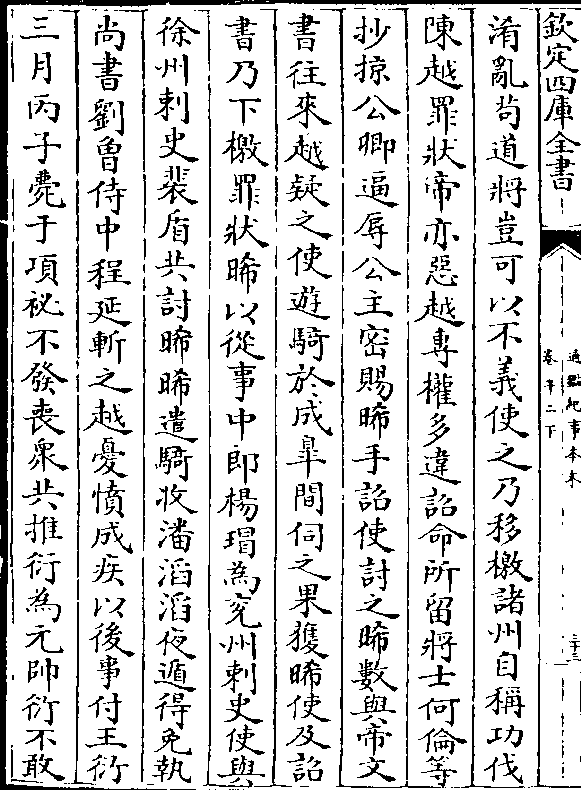 欽定四庫全書
通鑑紀事本末
卷十二下
三十三
淆亂茍道將豈可以不義使之乃移檄諸州自稱功伐
陳越罪狀帝亦惡越專權多違詔命所留將士何倫等
抄掠公卿逼辱公主密賜晞手詔使討之晞數與帝文
書往來越疑之使遊騎於成臯間伺之果獲晞使及詔
書乃下檄罪狀晞以從事中郎楊瑁為兗州刺史使與
徐州刺史裴盾共討晞晞遣騎收潘滔滔夜遁得免執
尚書劉曾侍中程延斬之越憂憤成疾以後事付王衍
三月丙子薨于項祕不發喪衆共推衍為元帥衍不敢